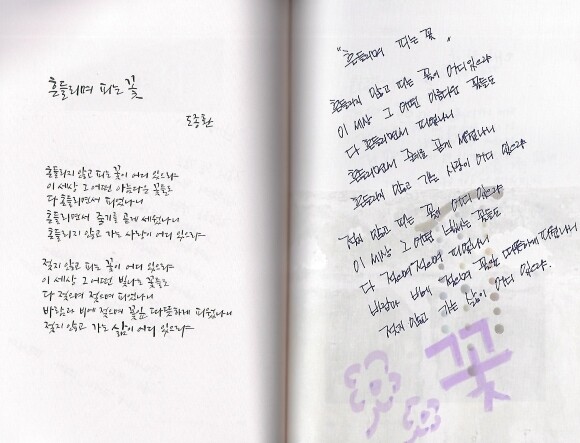 흔들리며 피는 꽃
도종환
흔들리지 않고 피는 꽃이 어디 있으랴
이 세상 그 어떤 아름다운 꽃들도
다 흔들리면서 피었나니
흔들리면서 줄기를 곧게 세웠나니
흔들리지 않고 가는 사랑이 어디 있으랴
젖지 않고 피는 꽃이 어디 있으랴
이 세상 그 어떤 빛나는 꽃들도
다 젖으며 젖으며 피었나니
바람과 비에 젖으며 꽃잎 따뜻하게 피웠나니
젖지 않고 가는 삶이 어디 있으랴
"흔들리며 피는 꽃"
흔들리지 않고 피는 꽃이 어디 있으랴
이 세상 그 어떤 아름다운 꽃들도
다 흔들리면서 피었나니
흔들리면서 줄기를 곧게 세웠나니
흔들리지 않고 가는 사랑이 어디 있으랴
젖지 않고 피는 꽃이 어디 있으랴
이 세상 그 어떤 빛나는 꽃들도
다 젖으며 젖으며 피었나니
바람과 비에 젖으며 꽃잎 따뜻하게 피웠나니
젖지 않고 가는 삶이 어디 있으랴.
꽃